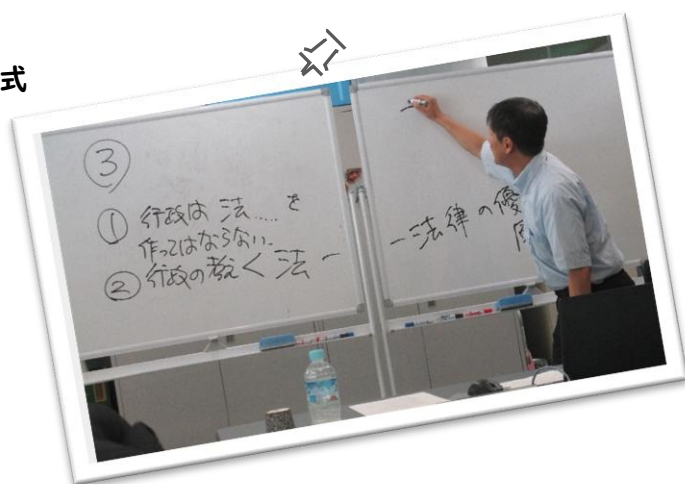 式
③
① 行政は 法..... を
作ってはならない.
② 行政の考え < 法 -
- 法律の優